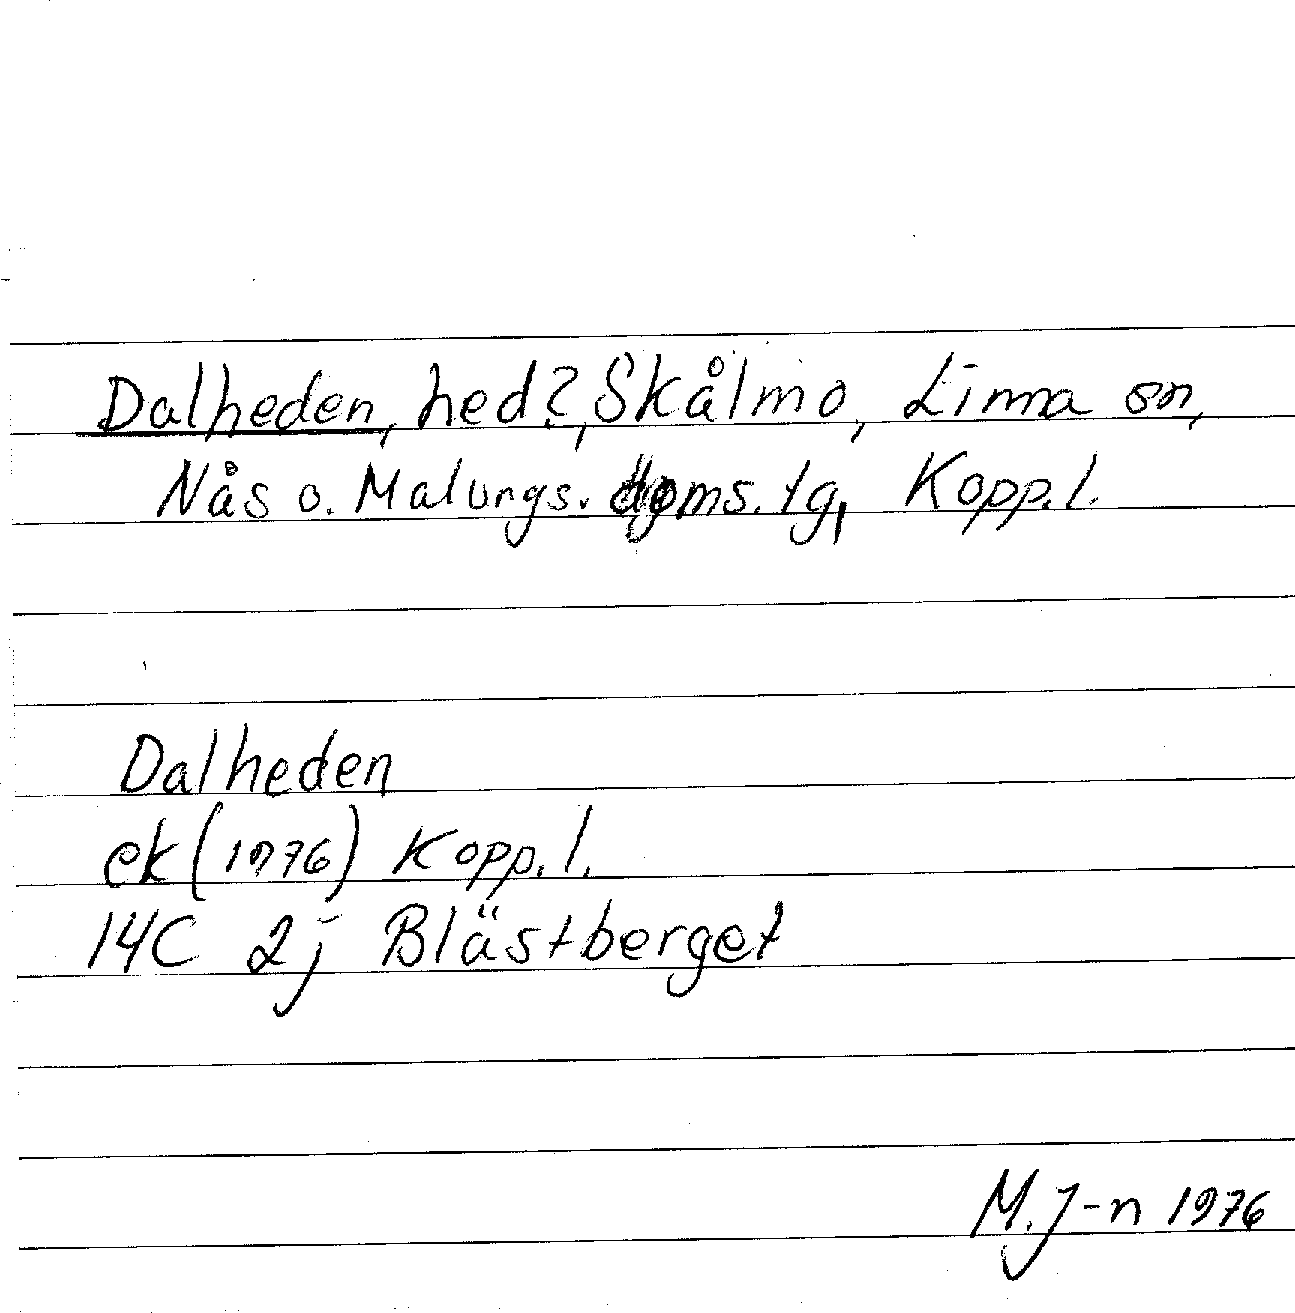 Dalheden, hed?, Skålmo, Lima sn,
Nås o. Malungs. doms. tg, Kopp. l.
Dalheden
ek (1976) Kopp. l.
14C 2j Blästberget
M. J-n 1976